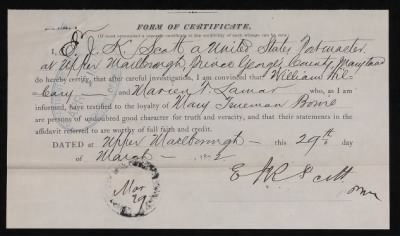 FORM OF CERTIFICATE.
I, E. J. K. Scott a United States Postmaster
at Upper Marlborough, Prince George's County, Maryland
do hereby certify, that after careful investigation, I am convinced that William
and who, as I am
informed, have testified to the loyalty of Mary Trueman Bowie
are persons of undoubted good character for truth and veracity, and that their statements in the
affidavit referred to are worthy of full faith and credit.
DATED at Upper Marlborough this 29th day
of March
Scott
Mar
29